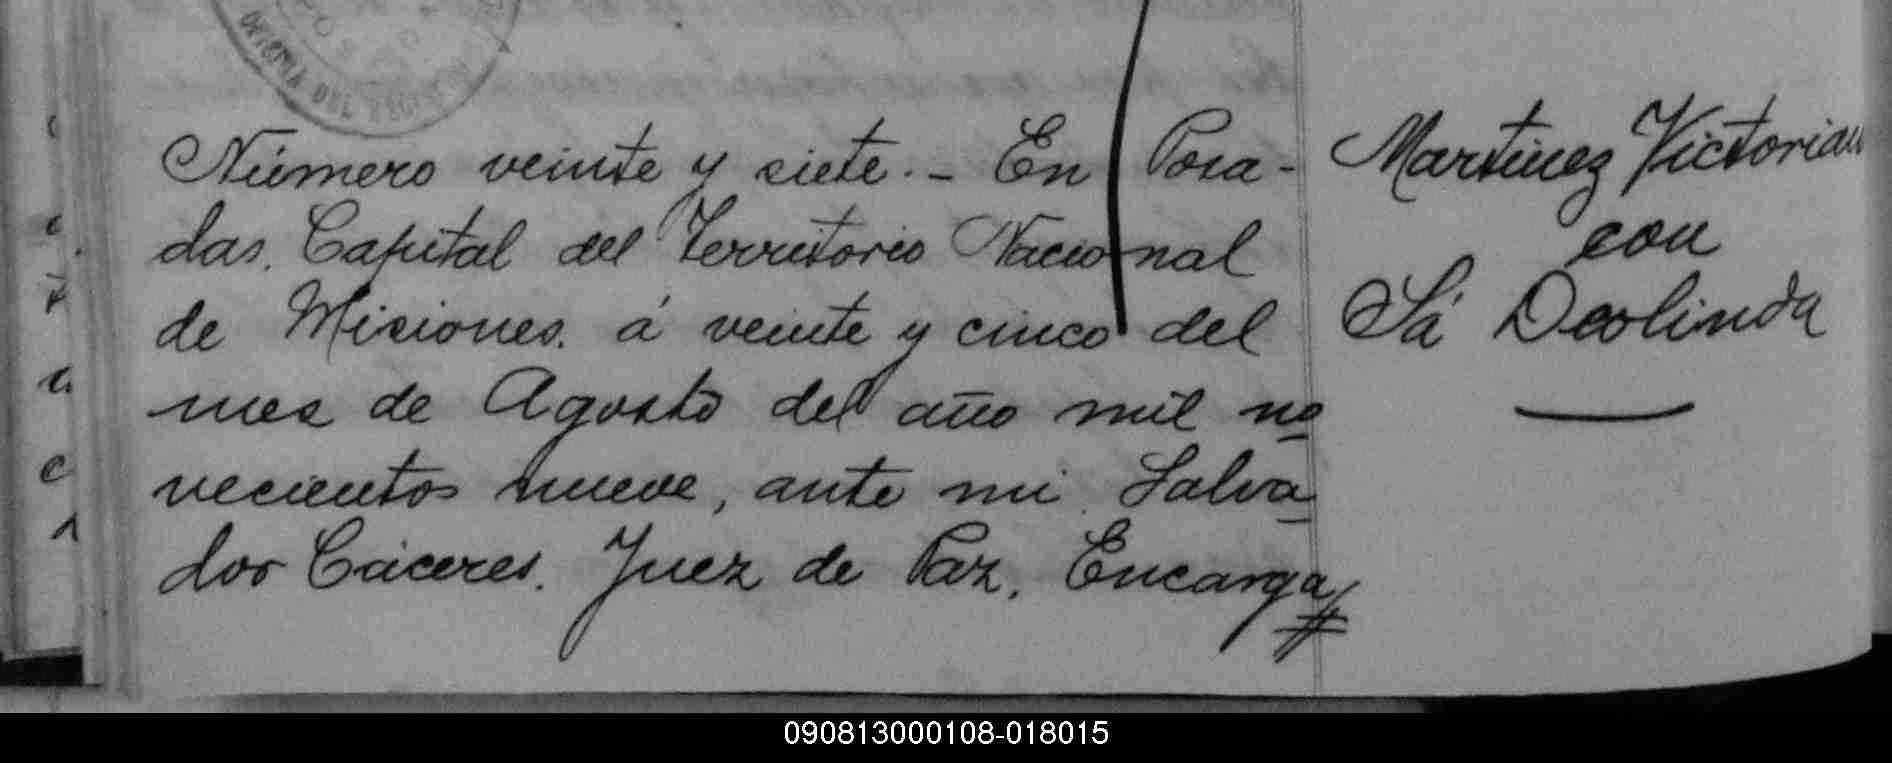 OFICINA DEL REGIS
Número veinte y siete.- En Posa-
das. Capital del Territorio Nacional
de Misiones. á veinte y cinco del
mes de Agosto del año mil no
vecientos nueve, ante mi Salva
dor Cáceres. Juez de Paz, Encarga
Martinez Victorian
con
Sá Deolinda
090813000108-018015